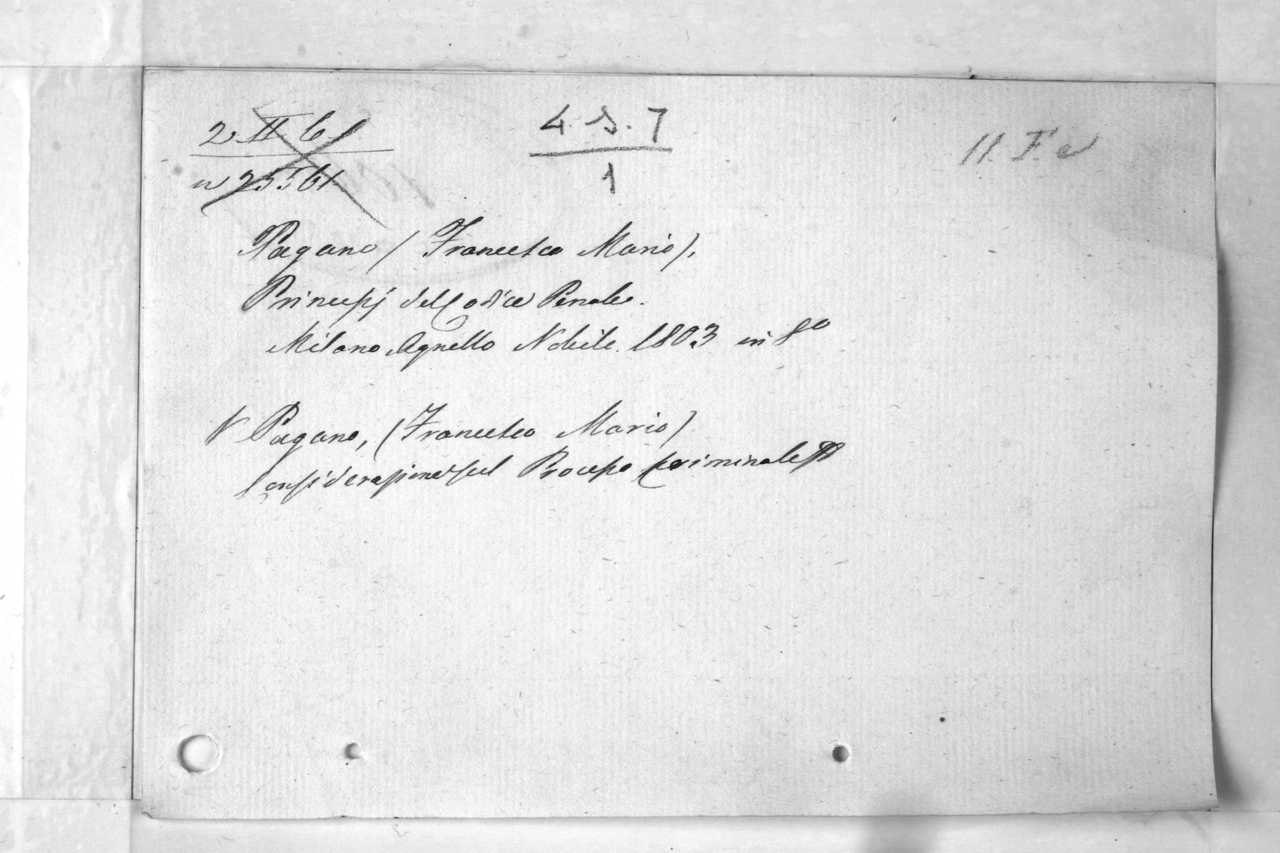 4. S. 7
1
11. F. e
Pagano (Francesco Mario).
Principj del Codice Penale.
Milano Agnello Nobile. 1803 in 8º
N Pagano, (Francesco Mario)
Considerazioni sul Processo Criminale